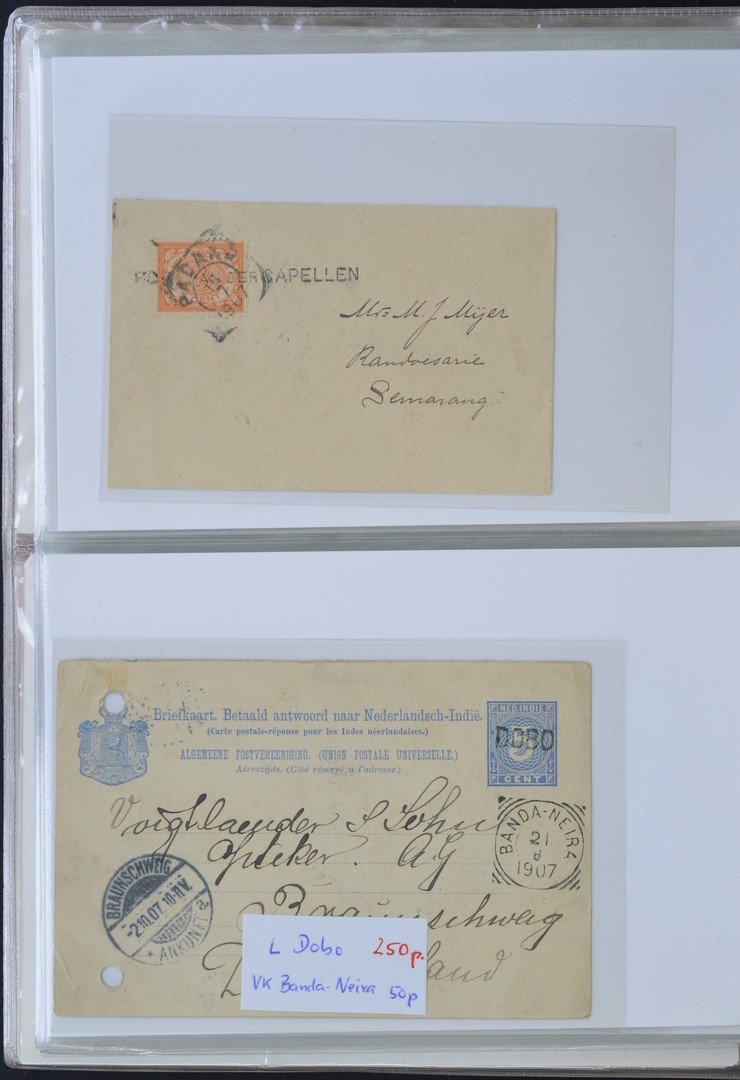 PADANG
1907
DER CAPELLEN
Mr= M. J. Mijer
Randoesarie
Semarang.
Briefkaart. Betaald antwoord naar Nederlandsch-Indië.
(Carte postale-réponse pour les Indes néerlandaises.)
ALGEMEENE POSTVEREENIGING. (UNION POSTALE UNIVERSELLE.)
Adreszijde. (Côté réservé à l'adresse.)
NED. INDIE
DOBO
5
CENT
Voigtlaender & Sohn
AG
Braunschweig
land
BANDA-NEIRA
21
8
1907
BRAUNSCHWEIG
-2.10.07. 10-11 V.
* ANKUNFT a
L Dobo 250p.
VK Banda-Neira 50p